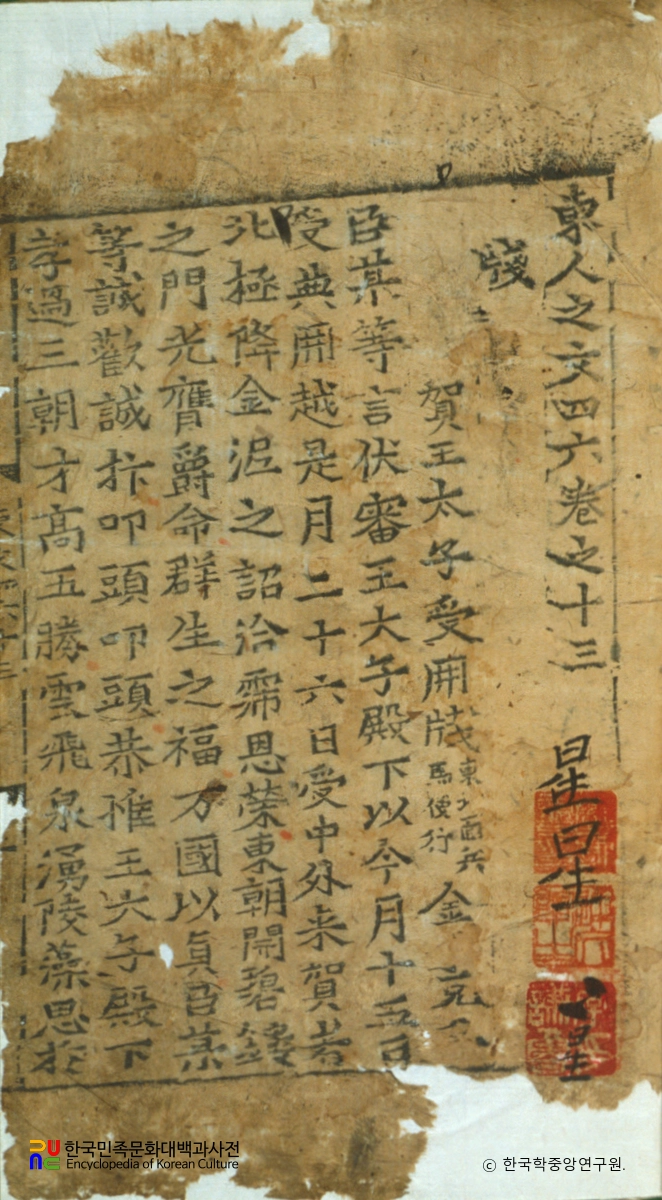 東人之文四六卷之十三
牋
賀王太子受冊牋 東女面兵馬使行 金克己
臣某等言伏審王太子殿下以今月十五日
受典冊越是月二十六日受中外来賀者
北極降金泥之詔洽霈恩榮東朝開碧鏤
之門光膺爵命群生之福万國以貞臣某
等誠歡誠抃叩頭叩頭恭惟王太子殿下
孝過三朝才高五勝雲飛泉湧陵藻思於
한국민족문화대백과사전
Encyclopedia of Korean Culture
ⓒ 한국학중앙연구원.